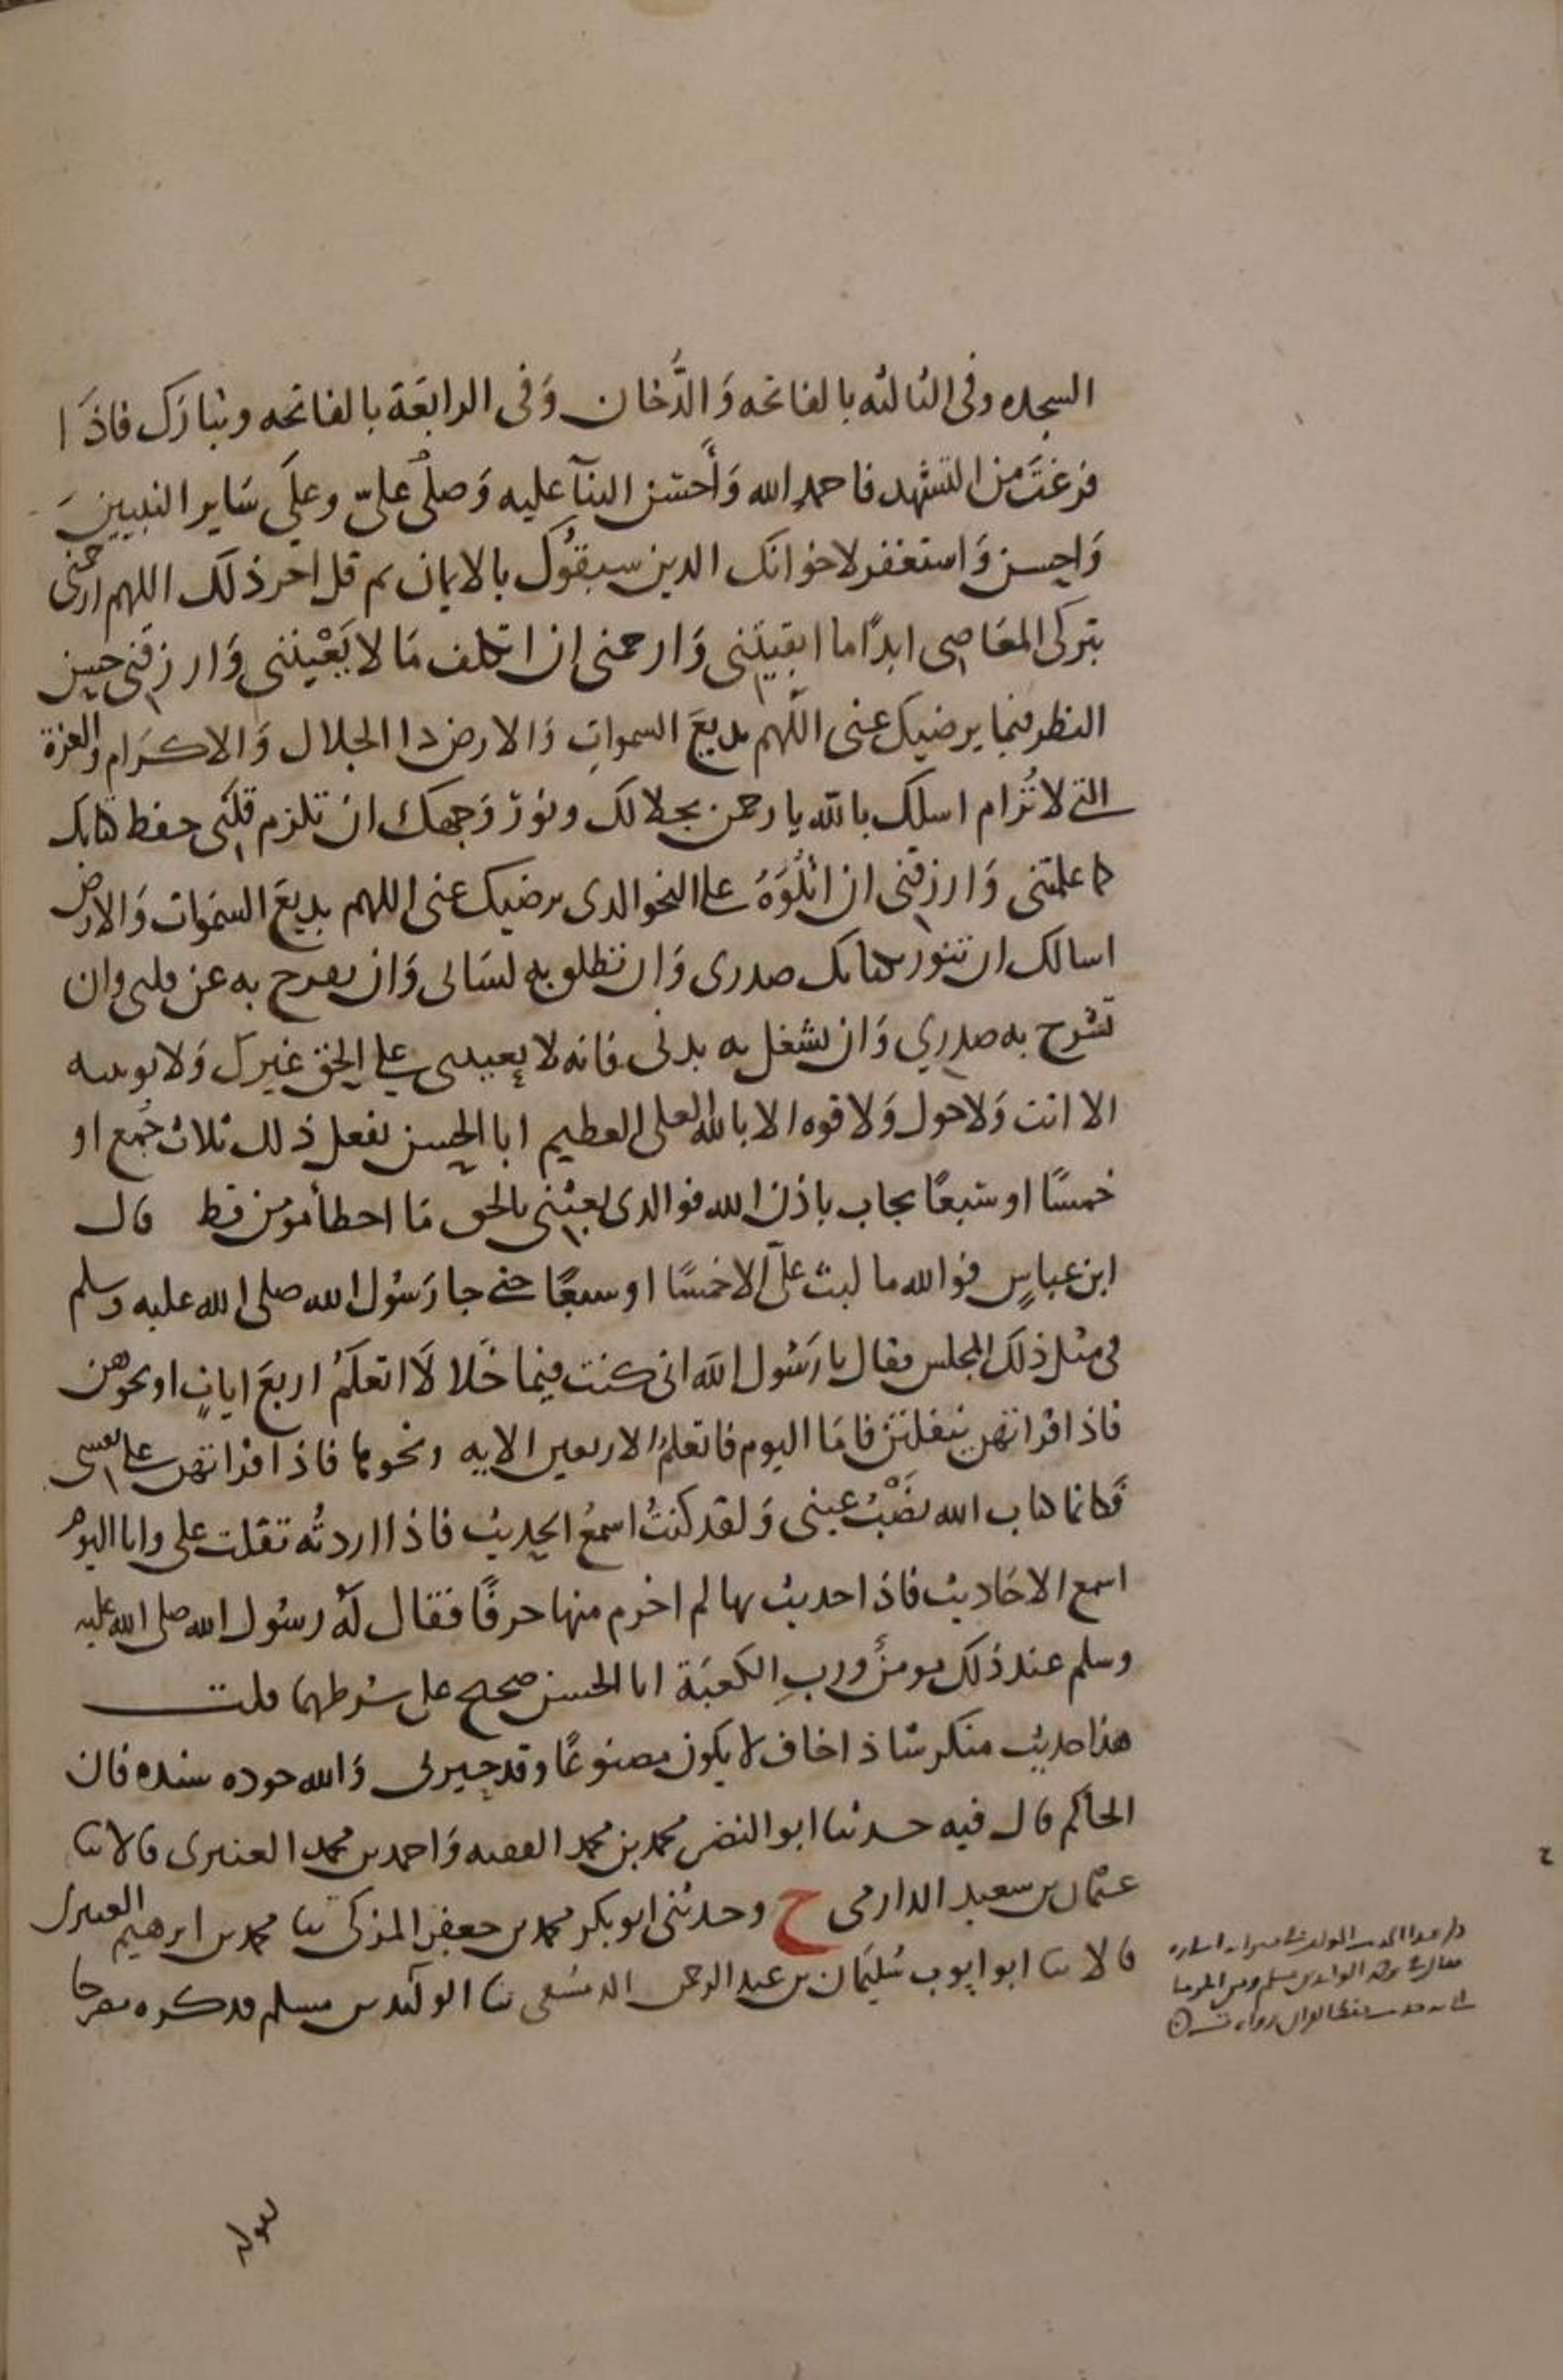 السجده وفى الثالثه بالفاتحه وَالدُّخان وَفى الرابعَة بالفاتحه وتبارَك فاذَا
فرغتَ من التشهد فاحمدِ الله وَأَحسَن الثنآ عليه وَصلّ علىّ وعلَي سَاير النبيينَ
وَاحسن وَاستغفر لاخوانك الدين سبقُوك بالايمان ثم قل اخر ذلك اللهم ارحمنى
بتركى المعَاصى ابدًا ما ابقيتنى وَارحمنى ان اتكلف مَا لا يَعْنِينى وَارزقنى حسن
النظر فيما يرضيك عنى اللّهم بديعَ السمواتِ وَالارض دا الجلال وَالاكرَام والعزة
التى لا تُرام اسلك بالله يا رحمن بجلالك ونور وَجهك ان تلزم قلبى حفظ كتابك
كما علمتنى وَارزقنى ان اتْلُوَهُ على النحو الدى يرضيك عنى اللهم بديعَ السمَوات وَالارض
اسالك ان تنور بكتابك صدرى وَان تطلق به لسَانى وَان تفرج به عن قلبى وان
تشرح به صدري وَان تشغل به بدنى فانه لا يعيننى على الحق غيرك وَلا يوتيه
الا انت وَلا حول وَلا قوه الا بالله العلى العظيم ابا الحسن تفعل ذلك ثلاث جُمع او
خمسًا او سَبعًا تجاب باذن الله فوالدى بعثنى بالحق مَا اخطأ مومن قط قال
ابن عباسٍ فوالله ما لبث علىّ الا خمسًا او سبعًا حتى جا رَسُول الله صلى الله عليه وسلم
فى مثل ذلك المجلس فقال يا رَسُول الله انى كنت فيما خَلا لَا اتعلَمُ اربعَ اياتٍ او نحوهن
فاذا قراتهن يتفلتن فامَا اليوم فاتعلمُ الاربعين الايه ونحوها فاذا قراتهن على نفسى
فَكانما كتاب الله نصْبُ عينى وَلقد كنتُ اسمعُ الحديث فاذا اردتُه تفلت على وانا اليوم
اسمع الاحَاديث فاذا حديث بها لم اخرم منها حرفًا فقال لهُ رسُول الله صلى الله عليه
وسلم عند ذلك مومنٌ وربِ الكعبَة ابا الحسن صحيح على شرطهما قلت
هذا حديث منكر شاذ اخاف لا يكون مصنوعًا وقد حيرنى وَالله جوده سنده فان
الحاكم قال فيه حدثنا ابو النضر محمد بن محمد الفقيه وَاحمد بن محمد العنبرى قالا ثنا
عثمان بن سعيد الدارمى ح وحدثنى ابو بكر محمد بن جعفر المزكى ثنا محمد بن ابرهيم العبدى
قالا ثنا ابو ايوب سُليمَان بن عبد الرحمن الدمشقى ثنا الوليد بن مسلم فدكره مصرحا
بقوله